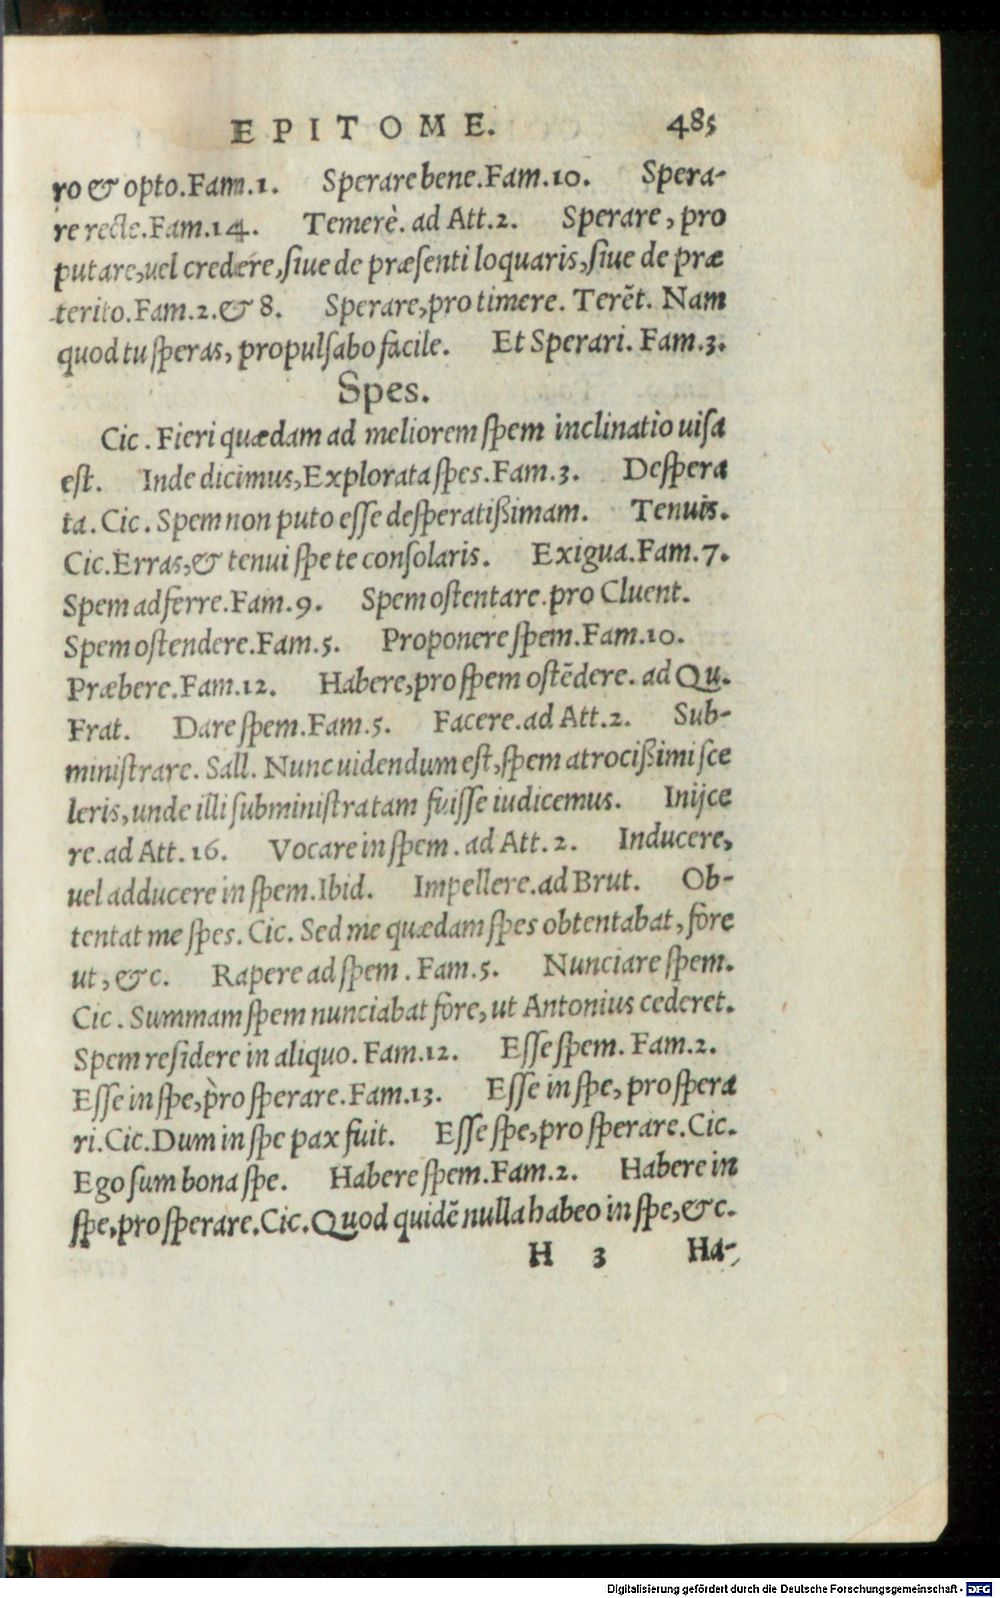 EPITOME. 485
ro & opto.Fam.1. Sperare bene.Fam.10. Spera-
re recte.Fam.14. Temerè. ad Att.2. Sperare, pro
putare,uel credere,ſiue de præſenti loquaris,ſiue de præ
terito.Fam.2.& 8. Sperare,pro timere. Terẽt. Nam
quod tu ſperas, propulſabo facile. Et Sperari. Fam.3.
Spes.
Cic. Fieri quædam ad meliorem ſpem inclinatio uiſa
eſt. Inde dicimus,Explorata ſpes.Fam.3. Deſpera
ta. Cic. Spem non puto eſſe deſperatißimam. Tenuis.
Cic.Erras,& tenui ſpe te conſolaris. Exigua.Fam.7.
Spem adferre.Fam.9. Spem oſtentare.pro Cluent.
Spem oſtendere.Fam.5. Proponere ſpem.Fam.10.
Præbere.Fam.12. Habere,pro ſpem oſtẽdere. ad Qu.
Frat. Dare ſpem.Fam.5. Facere.ad Att.2. Sub-
miniſtrare. Sall. Nunc uidendum eſt,ſpem atrocißimi ſce
leris,unde illi ſubminiſtratam fuiſſe iudicemus. Inijce
re.ad Att.16. Vocare in ſpem. ad Att.2. Inducere,
uel adducere in ſpem.Ibid. Impellere.ad Brut. Ob-
tentat me ſpes. Cic. Sed me quædam ſpes obtentabat, fore
ut, &c. Rapere ad ſpem. Fam.5. Nunciare ſpem.
Cic. Summam ſpem nunciabat fore, ut Antonius cederet.
Spem reſidere in aliquo. Fam.12. Eſſe ſpem. Fam.2.
Eſſe in ſpe, pro ſperare.Fam.13. Eſſe in ſpe, pro ſpera
ri.Cic.Dum in ſpe pax fuit. Eſſe ſpe,pro ſperare.Cic.
Ego ſum bona ſpe. Habere ſpem.Fam.2. Habere in
ſpe,pro ſperare.Cic.Quod quidẽ nulla habeo in ſpe,&c.
H 3 Ha-
Digitalisierung gefördert durch die Deutsche Forschungsgemeinschaft - DFG